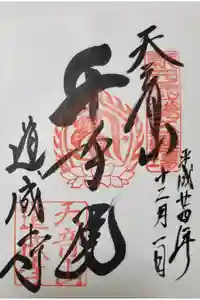 天音山
平成廿四年
十二月一日
千手
道成寺